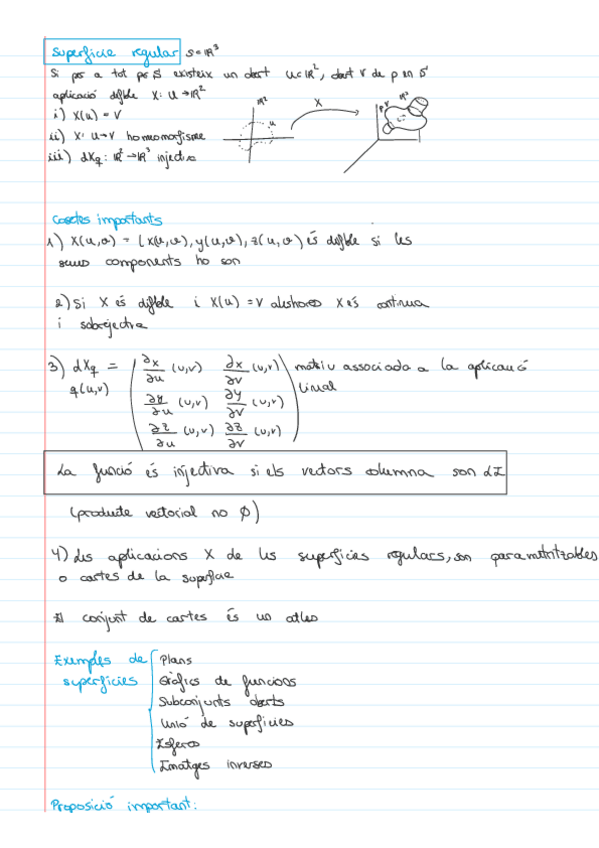 Superfície regular S⊂ℝ³
Si per a tot p∈S existeix un obert U⊂ℝ², obert V de p en S
aplicació difble X: U→ℝ²
i) X(u) = V
ii) X: U→V homeomorfisme
iii) dXq: ℝ²→ℝ³ injectiva
ℝ² u X ℝ³ p V
Cosetes importants
1) X(u,v) = (x(u,v), y(u,v), z(u,v)) és difble si les
seues components ho son
2) Si X és difble i X(u) = V aleshores X és continua
i sobrejectiva
3) dXq = ( ∂x/∂u (u,v) ∂x/∂v (u,v) ) matriu associada a la aplicació
q(u,v) ∂y/∂u (u,v) ∂y/∂v (u,v) lineal
∂z/∂u (u,v) ∂z/∂v (u,v)
La funció és injectiva si els vectors columna son LI
(producte vectorial no 0)
4) Les aplicacions X de les superfícies regulars, son parametritzables
o cartes de la superfície
conjunt de cartes és un atles
Exemples de superfícies
Plans
Gràfics de funcions
Subconjunts oberts
Unió de superfícies
Esferes
Imatges inverses
Proposició important: